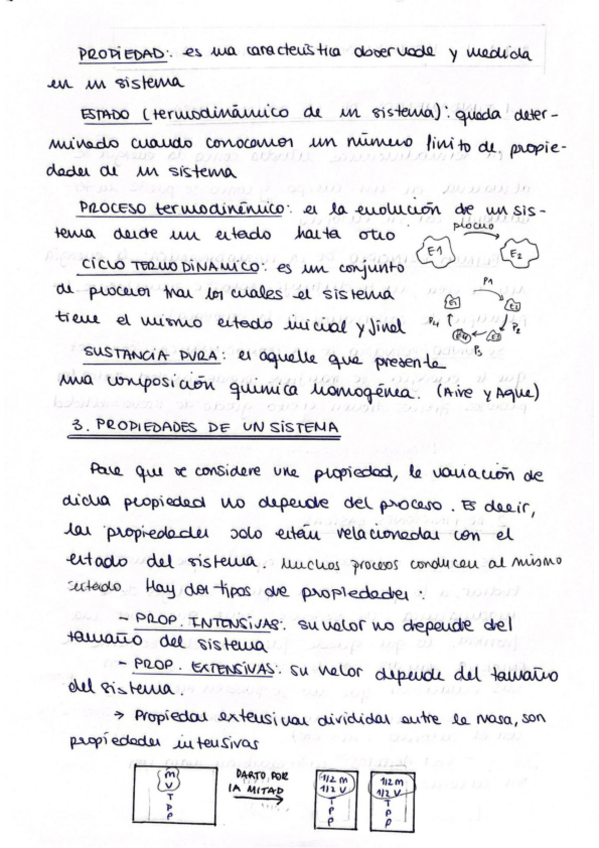 PROPIEDAD: es una característica observada y medida
en un sistema
ESTADO (termodinámico de un sistema): queda deter-
minado cuando conocamos un número finito de propie-
dades de un sistema
PROCESO termodinámico: es la evolución de un sis-
tema desde un estado hasta otro
proceso
E1
E2
CICLO TERMODINAMICO: es un conjunto
de procesos tras los cuales el sistema
tiene el mismo estado inicial y final
P1
E1
E2
P4
P2
E4
P3
SUSTANCIA PURA: es aquella que presenta
una composición química homogénea. (Aire y Agua)
3. PROPIEDADES DE UN SISTEMA
Para que se considere una propiedad, la variación de
dicha propiedad no depende del proceso. Es decir,
las propiedades solo están relacionadas con el
estado del sistema. Muchos procesos conducen al mismo
estado Hay dos tipos de propiedades:
- PROP. INTENSIVAS: su valor no depende del
tamaño del sistema
- PROP. EXTENSIVAS: su valor depende del tamaño
del sistema.
→ Propiedas extensivas divididas entre la masa, son
propiedades intensivas
m
V
T
P
ρ
PARTO POR
LA MITAD
1/2 m
1/2 V
T
P
ρ
1/2 m
1/2 V
T
P
ρ